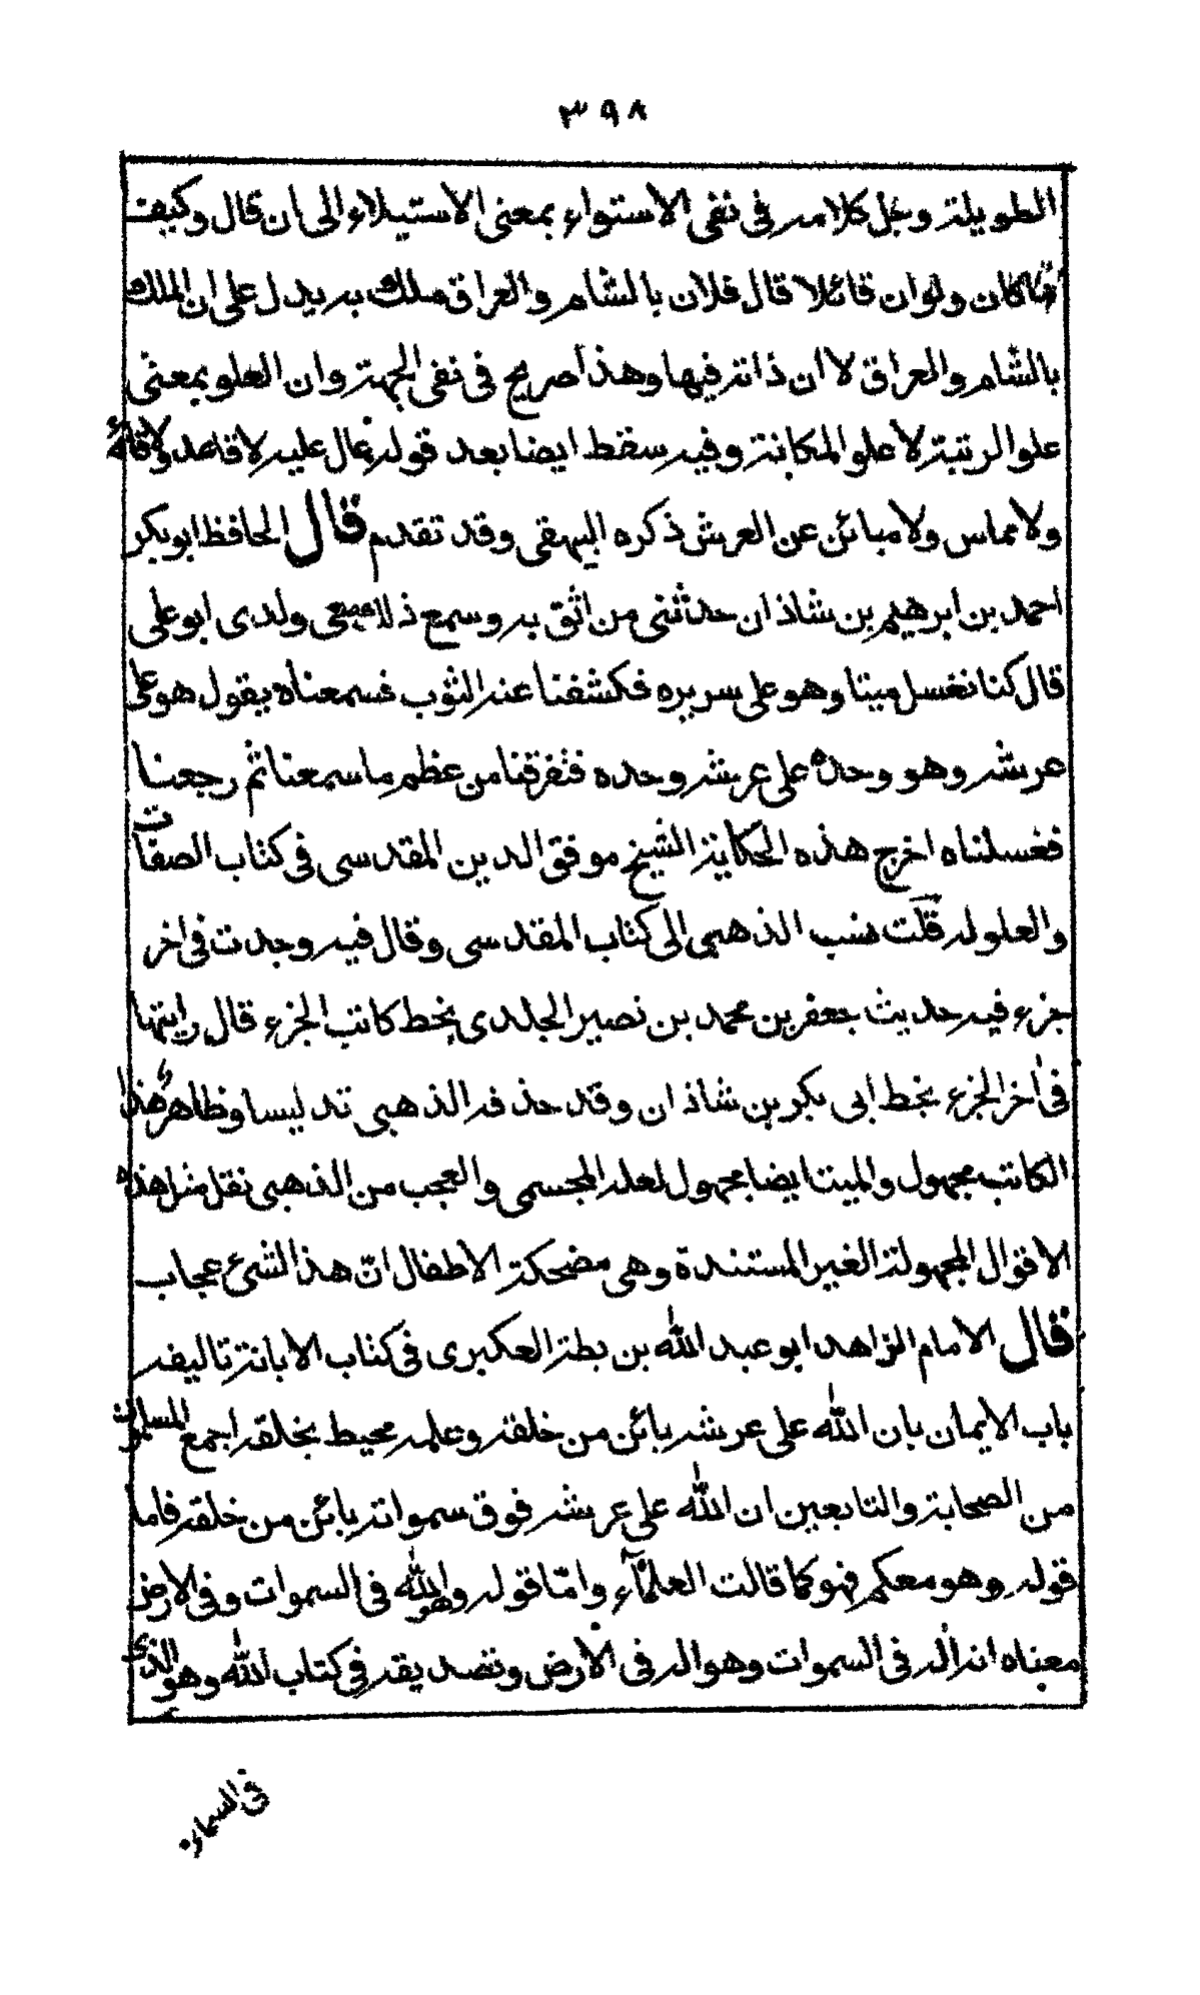 ٣٩٨
الطويلة وجل كلامه في نفى الاستواء بمعنى الاستيلاء الى ان قال وكيف
ما كان ولو ان قائلا قال فلان بالشام والعراق ملك به يدل على ان الملك
بالشام والعراق لا ان ذاته فيها وهذا صريح في نفى الجهة وان العلو بمعنى
علو الرتبة لا علو المكانة وفيه سقط ايضا بعد قوله عال عليه لا قاعد ولا قائم
ولا مماس ولا مبائن عن العرش ذكره البيهقى وقد تقدم قال الحافظ ابو بكر
احمد بن ابرهيم بن شاذان حدثنى من اثق به وسمع ذلك معى ولدى ابو على
قال كنا نغسل ميتا وهو على سريره فكشفنا عنه الثوب فسمعناه يقول هو على
عرشه وهو وحده على عرشه وحده فتفرقنا من عظم ما سمعنا ثم رجعنا
فغسلناه اخرج هذه الحكاية الشيخ موفق الدين المقدسى فى كتاب الصفات
والعلو له قلت نسب الذهبى الى كتاب المقدسى وقال فيه وجدت فى اخر
جزء فيه حديث جعفر بن محمد بن نصير الجلدى بخط كاتب الجزء قال رايتها
فى اخر الجزء بخط ابى بكر بن شاذان وقد حذفه الذهبى تدليسا وظاهر هذا
الكاتب مجهول والميت ايضا مجهول لعله المجسمى والعجب من الذهبى نقل مثل هذه
الاقوال المجهولة الغير المستندة وهى مضحكة الاطفال انّ هذا الشىء عجاب
قال الامام الزاهد ابو عبد الله بن بطة العكبرى فى كتاب الابانة تاليفه
باب الايمان بان الله على عرشه بائن من خلقه وعلمه محيط بخلقه اجمع المسلمون
من الصحابة والتابعين ان الله على عرشه فوق سمواته بائن من خلقه فاما
قوله وهو معكم فهو كما قالت العلمآء وامّا قوله وهو الله فى السموات وفى الارض
معناه انه اله فى السموات وهو اله فى الارض وتصديقه فى كتاب الله وهو الذى
فى السماء